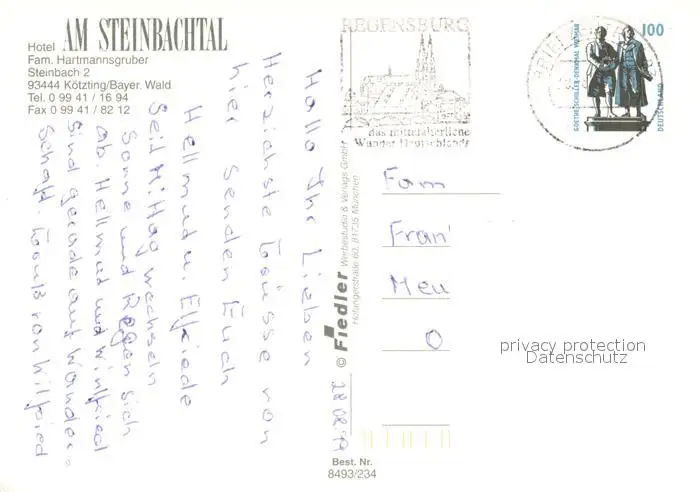 Hotel AM STEINBACHTAL
Fam. Hartmannsgruber
Steinbach 2
93444 Kötzting/Bayer. Wald
Tel. 0 99 41 / 16 94
Fax 0 99 41 / 82 12
Hallo Ihr Lieben
Herzlichste Grüsse von
hier senden Euch
Hellmud u. Elfriede
Seit Mittag wechseln
Sonne und Regen sich
ab. Hellmud und Winfried
sind gerade auf Wander-
schaft. Gruß von Wilfried
REGENSBURG
das mittelalterliche
Wunder Deutschlands
100
GOETHE-SCHILLER-DENKMAL WEIMAR
DEUTSCHLAND
Fam
Fran
Meu
O
privacy protection
Datenschutz
© Fiedler Werbestudio & Verlags GmbH
Hofangerstraße 60, 81735 München
Best. Nr.
8493/234